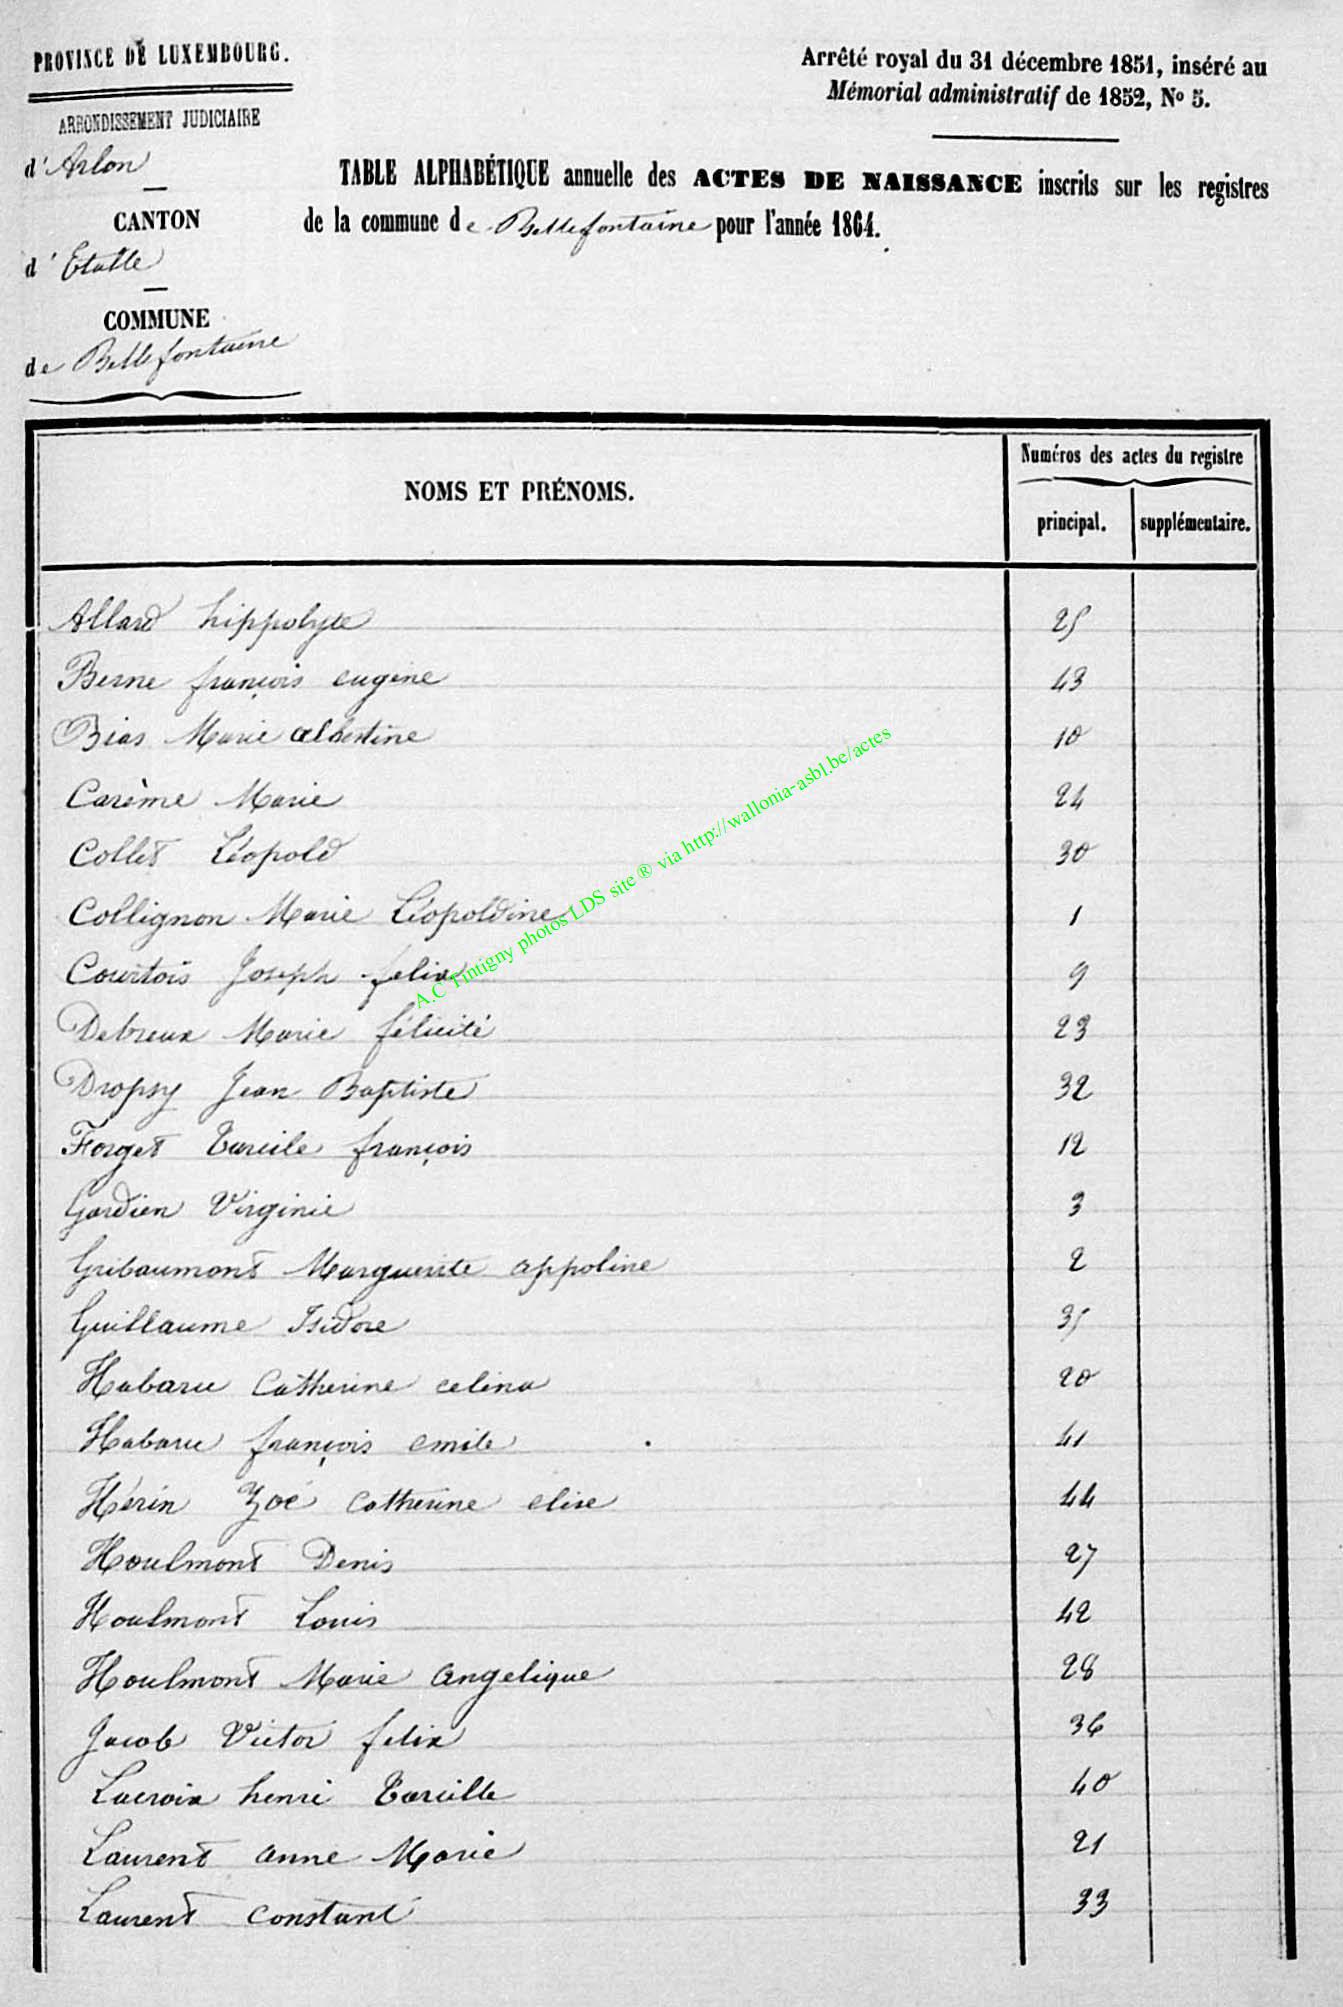 PROVINCE DE LUXEMBOURG.
ARRONDISSEMENT JUDICIAIRE
d'Arlon
CANTON
d'Etalle
COMMUNE
de Bellefontaine
Arrêté royal du 31 décembre 1851, inséré au
Mémorial administratif de 1852, No 5.
TABLE ALPHABÉTIQUE annuelle des ACTES DE NAISSANCE inscrits sur les registres
de la commune de Bellefontaine pour l'année 1864.
NOMS ET PRÉNOMS.
Numéros des actes du registre
principal. supplémentaire.
Allard hippolyte 25
Berne françois eugène 43
Bias Marie albertine 10
Carème Marie 24
Collet Léopold 30
Collignon Marie Léopoldine 1
Courtois Joseph felix 9
Debreux Marie félicité 23
Dropsy Jean Baptiste 32
Forget Tarcile françois 12
Gardien Virginie 3
Gribaumont Marguerite appoline 2
Guillaume Isidore 35
Habaru Catherine celina 20
Habaru françois emile 41
Hérin Zoé catherine elise 44
Houlmont Denis 27
Houlmont Louis 42
Houlmont Marie angelique 28
Jacob Victor felix 36
Lacroix henri Tarcille 40
Laurent anne Marie 21
Laurent constant 33
A.C Tintigny photos LDS site ® via http://wallonia-asbl.be/actes